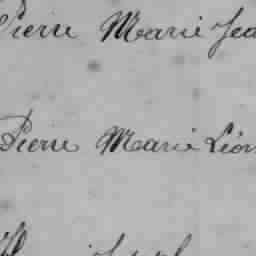 Pierre Marie Jea
Pierre Marie Léon